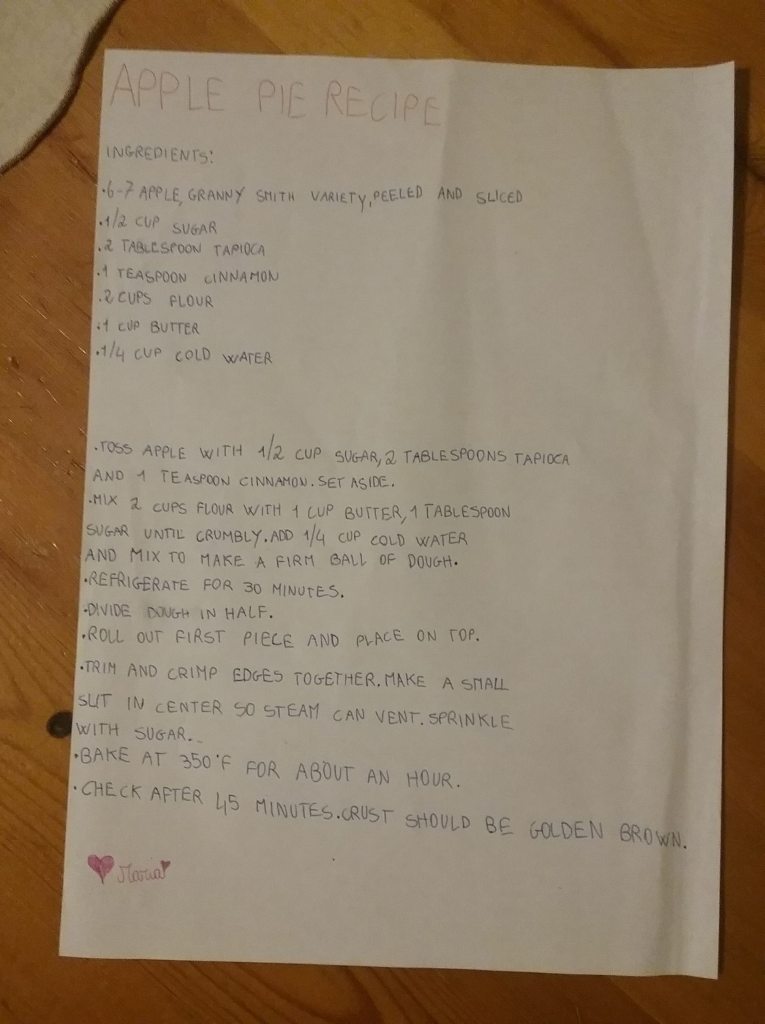 APPLE PIE RECIPE
INGREDIENTS:
.6-7 APPLE, GRANNY SMITH VARIETY, PEELED AND SLICED
.1/2 CUP SUGAR
.2 TABLESPOON TAPIOCA
.1 TEASPOON CINNAMON
.2 CUPS FLOUR
.1 CUP BUTTER
.1/4 CUP COLD WATER
.TOSS APPLE WITH 1/2 CUP SUGAR, 2 TABLESPOONS TAPIOCA
AND 1 TEASPOON CINNAMON. SET ASIDE.
.MIX 2 CUPS FLOUR WITH 1 CUP BUTTER, 1 TABLESPOON
SUGAR UNTIL CRUMBLY. ADD 1/4 CUP COLD WATER
AND MIX TO MAKE A FIRM BALL OF DOUGH.
.REFRIGERATE FOR 30 MINUTES.
.DIVIDE DOUGH IN HALF.
.ROLL OUT FIRST PIECE AND PLACE ON TOP.
.TRIM AND CRIMP EDGES TOGETHER. MAKE A SMALL
SLIT IN CENTER SO STEAM CAN VENT. SPRINKLE
WITH SUGAR..
.BAKE AT 350°F FOR ABOUT AN HOUR.
.CHECK AFTER 45 MINUTES. CRUST SHOULD BE GOLDEN BROWN.
Maria